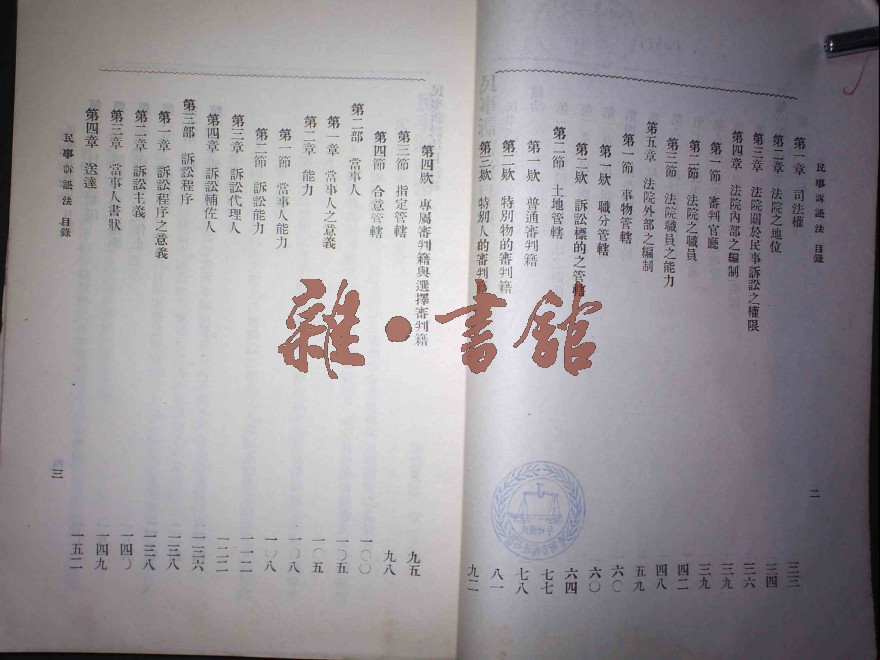 民事訴訟法 目錄
二
第一章 司法權 三三
第二章 法院之地位 三四
第三章 法院關於民事訴訟之權限 三六
第四章 法院內部之編制 三九
第一節 審判官廳 三九
第二節 法院之職員 四二
第三節 法院職員之能力 四八
第五章 法院外部之編制 五九
第一節 事物管轄 六〇
第一欵 職分管轄 六〇
第二欵 訴訟標的之管轄 六四
第二節 土地管轄 七七
第一欵 普通審判籍 七八
第二欵 特別物的審判籍 八一
第三欵 特別人的審判籍 九二
第四欵 專屬審判籍與選擇審判籍 九五
第三節 指定管轄 九八
第四節 合意管轄 一〇〇
第二部 當事人 一〇五
第一章 當事人之意義 一〇五
第二章 能力 一〇八
第一節 當事人能力 一〇八
第二節 訴訟能力 一一二
第三章 訴訟代理人 一二二
第四章 訴訟輔佐人 一三六
第三部 訴訟程序 一三八
第一章 訴訟程序之意義 一三八
第二章 訴訟主義 一四〇
第三章 當事人書狀 一四九
第四章 送達 一五二
民事訴訟法 目錄
三
雜·書館